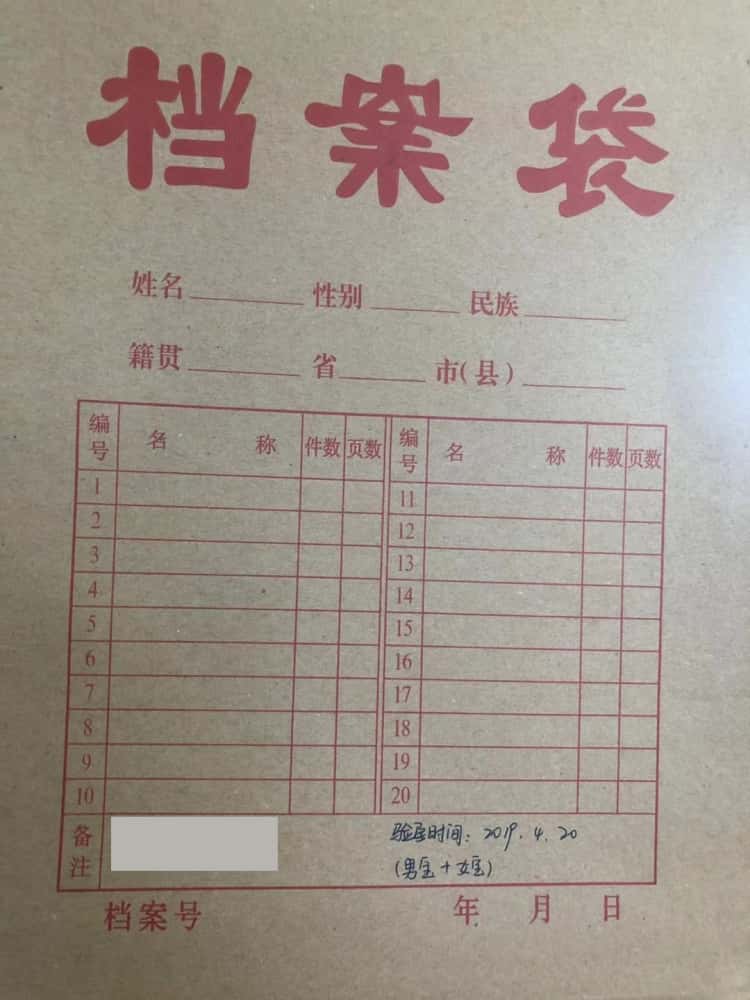 档案袋
姓名 性别 民族
籍贯 省 市(县)
编号 名称 件数 页数 编号 名称 件数 页数
1 11
2 12
3 13
4 14
5 15
6 16
7 17
8 18
9 19
10 20
备注
验房时间：2019.4.20
(男宝+女宝)
档案号 年 月 日